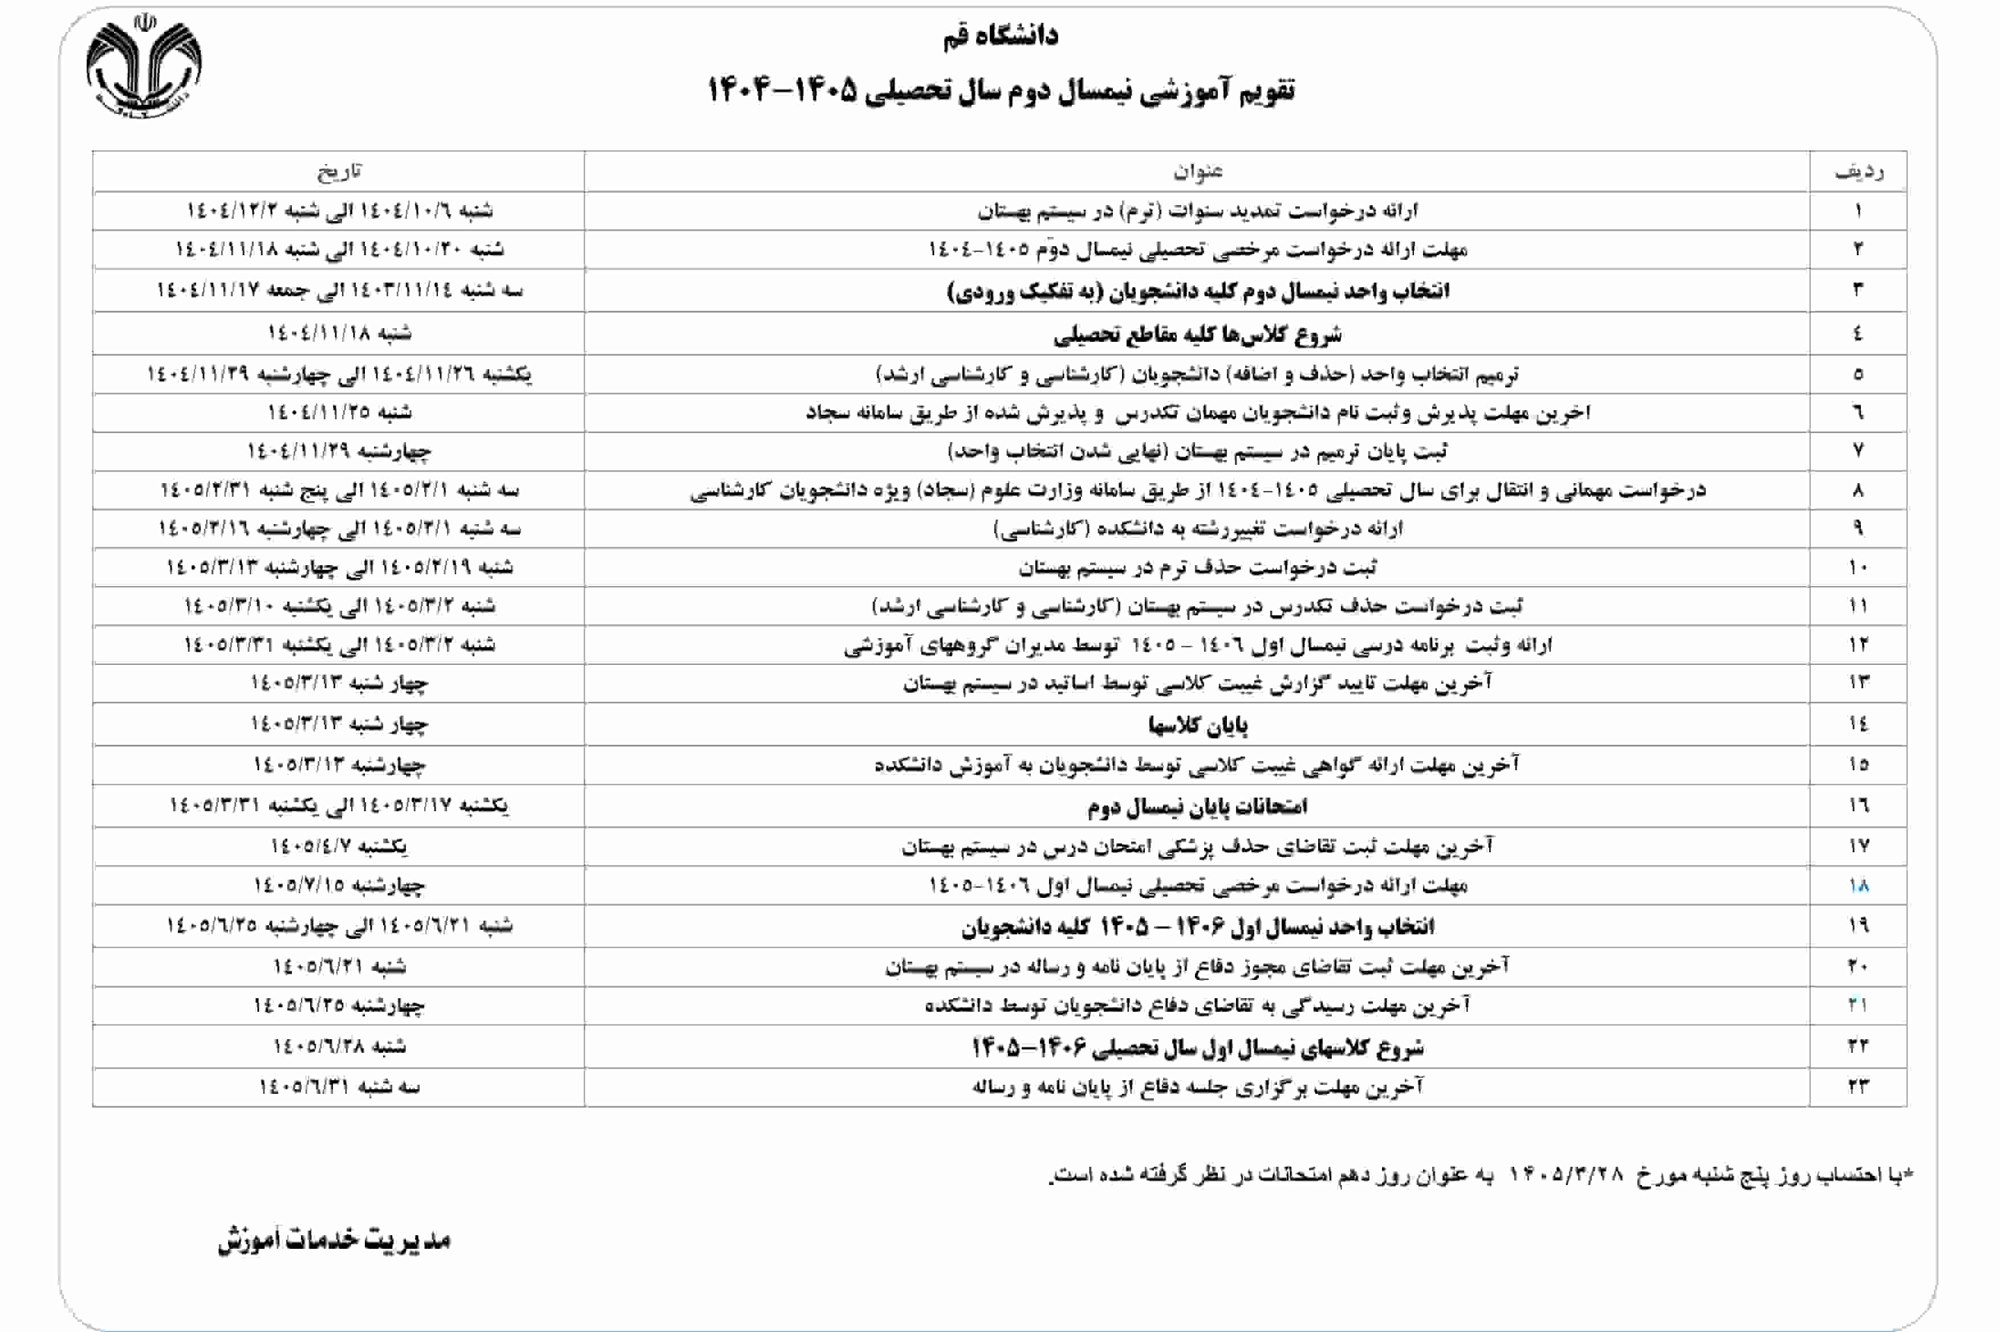 دانشگاه قم
تقویم آموزشی نیمسال دوم سال تحصیلی ۱۴۰۵-۱۴۰۴
ردیف عنوان تاریخ
۱ ارائه درخواست تمدید سنوات (ترم) در سیستم بهستان شنبه ۱٤۰٤/۱۰/٦ الی شنبه ۱٤۰٤/۱۲/۲
۲ مهلت ارائه درخواست مرخصی تحصیلی نیمسال دوم ۱٤۰۵-۱٤۰٤ شنبه ۱٤۰٤/۱۰/۲۰ الی شنبه ۱٤۰٤/۱۱/۱۸
۳ انتخاب واحد نیمسال دوم کلیه دانشجویان (به تفکیک ورودی) سه شنبه ۱٤۰۳/۱۱/۱٤ الی جمعه ۱٤۰٤/۱۱/۱۷
٤ شروع کلاس‌ها کلیه مقاطع تحصیلی شنبه ۱٤۰٤/۱۱/۱۸
۵ ترمیم انتخاب واحد (حذف و اضافه) دانشجویان (کارشناسی و کارشناسی ارشد) یکشنبه ۱٤۰٤/۱۱/۲٦ الی چهارشنبه ۱٤۰٤/۱۱/۲۹
٦ اخرین مهلت پذیرش وثبت نام دانشجویان مهمان تکدرس و پذیرش شده از طریق سامانه سجاد شنبه ۱٤۰٤/۱۱/۲۵
۷ ثبت پایان ترمیم در سیستم بهستان (نهایی شدن انتخاب واحد) چهارشنبه ۱٤۰٤/۱۱/۲۹
۸ درخواست مهمانی و انتقال برای سال تحصیلی ۱٤۰۵-۱٤۰٤ از طریق سامانه وزارت علوم (سجاد) ویژه دانشجویان کارشناسی سه شنبه ۱٤۰۵/۲/۱ الی پنج شنبه ۱٤۰۵/۲/۳۱
۹ ارائه درخواست تغییررشته به دانشکده (کارشناسی) سه شنبه ۱٤۰۵/۲/۱ الی چهارشنبه ۱٤۰۵/۲/۱٦
۱۰ ثبت درخواست حذف ترم در سیستم بهستان شنبه ۱٤۰۵/۲/۱۹ الی چهارشنبه ۱٤۰۵/۳/۱۳
۱۱ ثبت درخواست حذف تکدرس در سیستم بهستان (کارشناسی و کارشناسی ارشد) شنبه ۱٤۰۵/۳/۲ الی یکشنبه ۱٤۰۵/۳/۱۰
۱۲ ارائه وثبت برنامه درسی نیمسال اول ۱٤۰٦ - ۱٤۰۵ توسط مدیران گروههای آموزشی شنبه ۱٤۰۵/۳/۲ الی یکشنبه ۱٤۰۵/۳/۳۱
۱۳ آخرین مهلت تایید گزارش غیبت کلاسی توسط اساتید در سیستم بهستان چهار شنبه ۱٤۰۵/۳/۱۳
۱٤ پایان کلاسها چهار شنبه ۱٤۰۵/۳/۱۳
۱۵ آخرین مهلت ارائه گواهی غیبت کلاسی توسط دانشجویان به آموزش دانشکده چهارشنبه ۱٤۰۵/۳/۱۳
۱٦ امتحانات پایان نیمسال دوم یکشنبه ۱٤۰۵/۳/۱۷ الی یکشنبه ۱٤۰۵/۳/۳۱
۱۷ آخرین مهلت ثبت تقاضای حذف پزشکی امتحان درس در سیستم بهستان یکشنبه ۱٤۰۵/٤/۷
۱۸ مهلت ارائه درخواست مرخصی تحصیلی نیمسال اول ۱٤۰٦-۱٤۰۵ چهارشنبه ۱٤۰۵/۷/۱۵
۱۹ انتخاب واحد نیمسال اول ۱۴۰۶ - ۱۴۰۵ کلیه دانشجویان شنبه ۱٤۰۵/٦/۲۱ الی چهارشنبه ۱٤۰۵/٦/۲۵
۲۰ آخرین مهلت ثبت تقاضای مجوز دفاع از پایان نامه و رساله در سیستم بهستان شنبه ۱٤۰۵/٦/۲۱
۲۱ آخرین مهلت رسیدگی به تقاضای دفاع دانشجویان توسط دانشکده چهارشنبه ۱٤۰۵/٦/۲۵
۲۲ شروع کلاسهای نیمسال اول سال تحصیلی ۱۴۰۶-۱۴۰۵ شنبه ۱٤۰۵/٦/۲۸
۲۳ آخرین مهلت برگزاری جلسه دفاع از پایان نامه و رساله سه شنبه ۱٤۰۵/٦/۳۱
*با احتساب روز پنج شنبه مورخ ۱۴۰۵/۳/۲۸ به عنوان روز دهم امتحانات در نظر گرفته شده است.
مدیریت خدمات آموزش